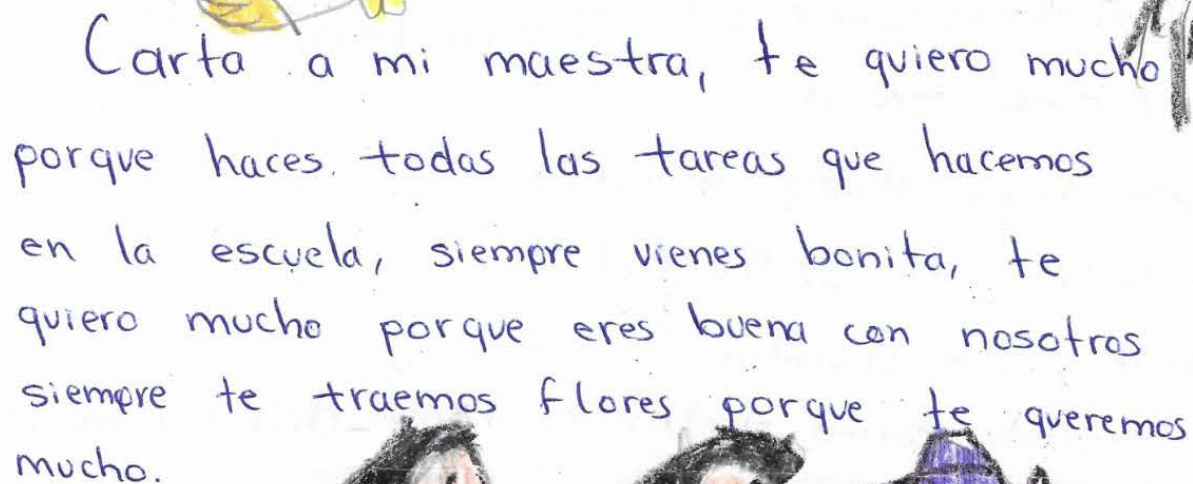 Carta a mi maestra, te quiero mucho
porque haces todas las tareas que hacemos
en la escuela, siempre vienes bonita, te
quiero mucho porque eres buena con nosotros
siempre te traemos flores porque te queremos
mucho.